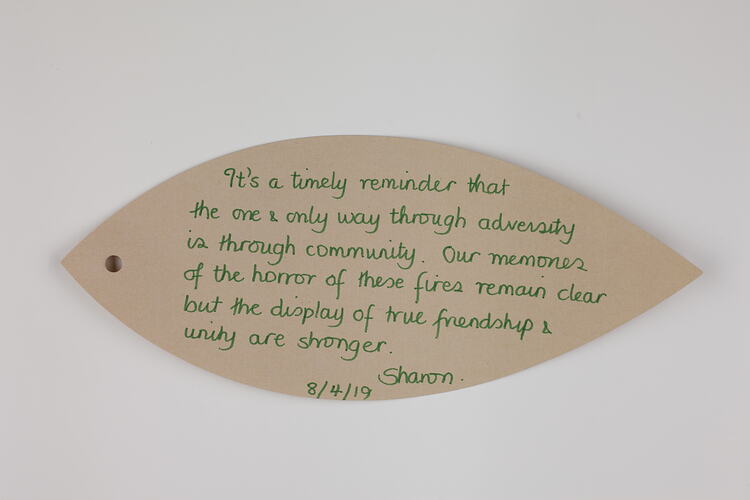 It's a timely reminder that
the one & only way through adversity
is through community. Our memories
of the horror of these fires remain clear
but the display of true friendship &
unity are stronger.
Sharon.
8/4/19